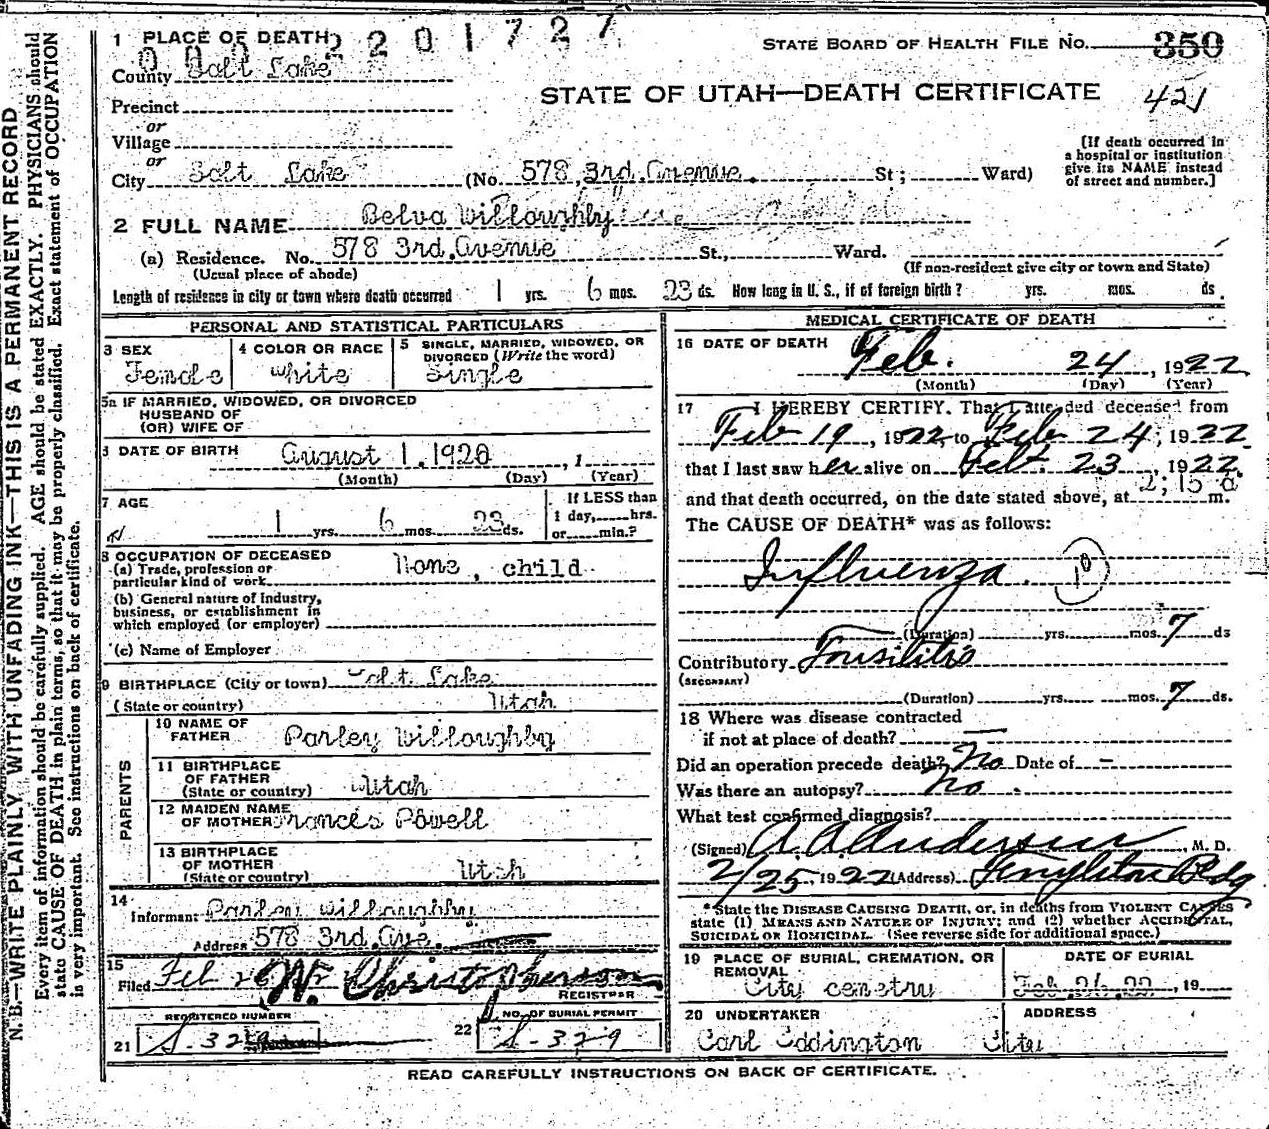 N. B.—WRITE PLAINLY, WITH UNFADING INK—THIS IS A PERMANENT RECORD
Every item of information should be carefully supplied. AGE should be stated EXACTLY. PHYSICIANS should
state CAUSE OF DEATH in plain terms, so that it may be properly classified. Exact statement of OCCUPATION
is very important. See instructions on back of certificate.
2201727
1 PLACE OF DEATH
STATE BOARD OF HEALTH FILE NO. 350
County Salt Lake
STATE OF UTAH—DEATH CERTIFICATE 421
Precinct
or
Village
or
City Salt Lake (No. 578, 3rd. Avenue. St; Ward)
[If death occurred in
a hospital or institution
give its NAME instead
of street and number.]
2 FULL NAME Belva Willoughby
(a) Residence. No. 578 3rd. Avenue St., Ward.
(Usual place of abode) (If non-resident give city or town and State)
Length of residence in city or town where death occurred 1 yrs. 6 mos. 23 ds. How long in U. S., if of foreign birth? yrs. mos. ds.
PERSONAL AND STATISTICAL PARTICULARS
3 SEX Female
4 COLOR OR RACE White
5 SINGLE, MARRIED, WIDOWED, OR
DIVORCED (Write the word)
Single
5a IF MARRIED, WIDOWED, OR DIVORCED
HUSBAND OF
(OR) WIFE OF
6 DATE OF BIRTH August 1. 1920, 1
(Month) (Day) (Year)
7 AGE
1 yrs. 6 mos. 23 ds.
If LESS than
1 day, hrs.
or min.?
8 OCCUPATION OF DECEASED
(a) Trade, profession or
particular kind of work None, child
(b) General nature of Industry,
business, or establishment in
which employed (or employer)
(c) Name of Employer
9 BIRTHPLACE (City or town) Salt Lake
(State or country) Utah
PARENTS
10 NAME OF
FATHER Parley Willoughby
11 BIRTHPLACE
OF FATHER
(State or country) Utah
12 MAIDEN NAME
OF MOTHER Frances Powell
13 BIRTHPLACE
OF MOTHER
(State or country) Utah
14
Informant Parley Willoughby
Address 578 3rd. Ave.
15
Filed Feb 26 W. Christopherson
REGISTRAR
REGISTERED NUMBER
21 S-329
NO. OF BURIAL PERMIT
22 S-329
MEDICAL CERTIFICATE OF DEATH
16 DATE OF DEATH
Feb. 24, 1922
(Month) (Day) (Year)
17 I HEREBY CERTIFY, That I attended deceased from
Feb 19, 1922 to Feb 24, 1922
that I last saw her alive on Feb. 23, 1922
and that death occurred, on the date stated above, at 2;15 a m.
The CAUSE OF DEATH* was as follows:
Influenza. 10
(Duration) yrs. mos. 7 ds
Contributory Tonsilitis
(SECONDARY)
(Duration) yrs. mos. 7 ds.
18 Where was disease contracted
if not at place of death? —
Did an operation precede death? No Date of —
Was there an autopsy? No.
What test confirmed diagnosis?
(Signed) A. A. Anderson, M. D.
2/25, 1922 (Address) Templeton Bldg
*State the DISEASE CAUSING DEATH, or, in deaths from VIOLENT CAUSES
state (1) MEANS AND NATURE OF INJURY; and (2) whether ACCIDENTAL,
SUICIDAL OR HOMICIDAL. (See reverse side for additional space.)
19 PLACE OF BURIAL, CREMATION, OR
REMOVAL
City cemetry
DATE OF BURIAL
Feb. 26, 22, 19
20 UNDERTAKER
Carl Eddington
ADDRESS
City
READ CAREFULLY INSTRUCTIONS ON BACK OF CERTIFICATE.